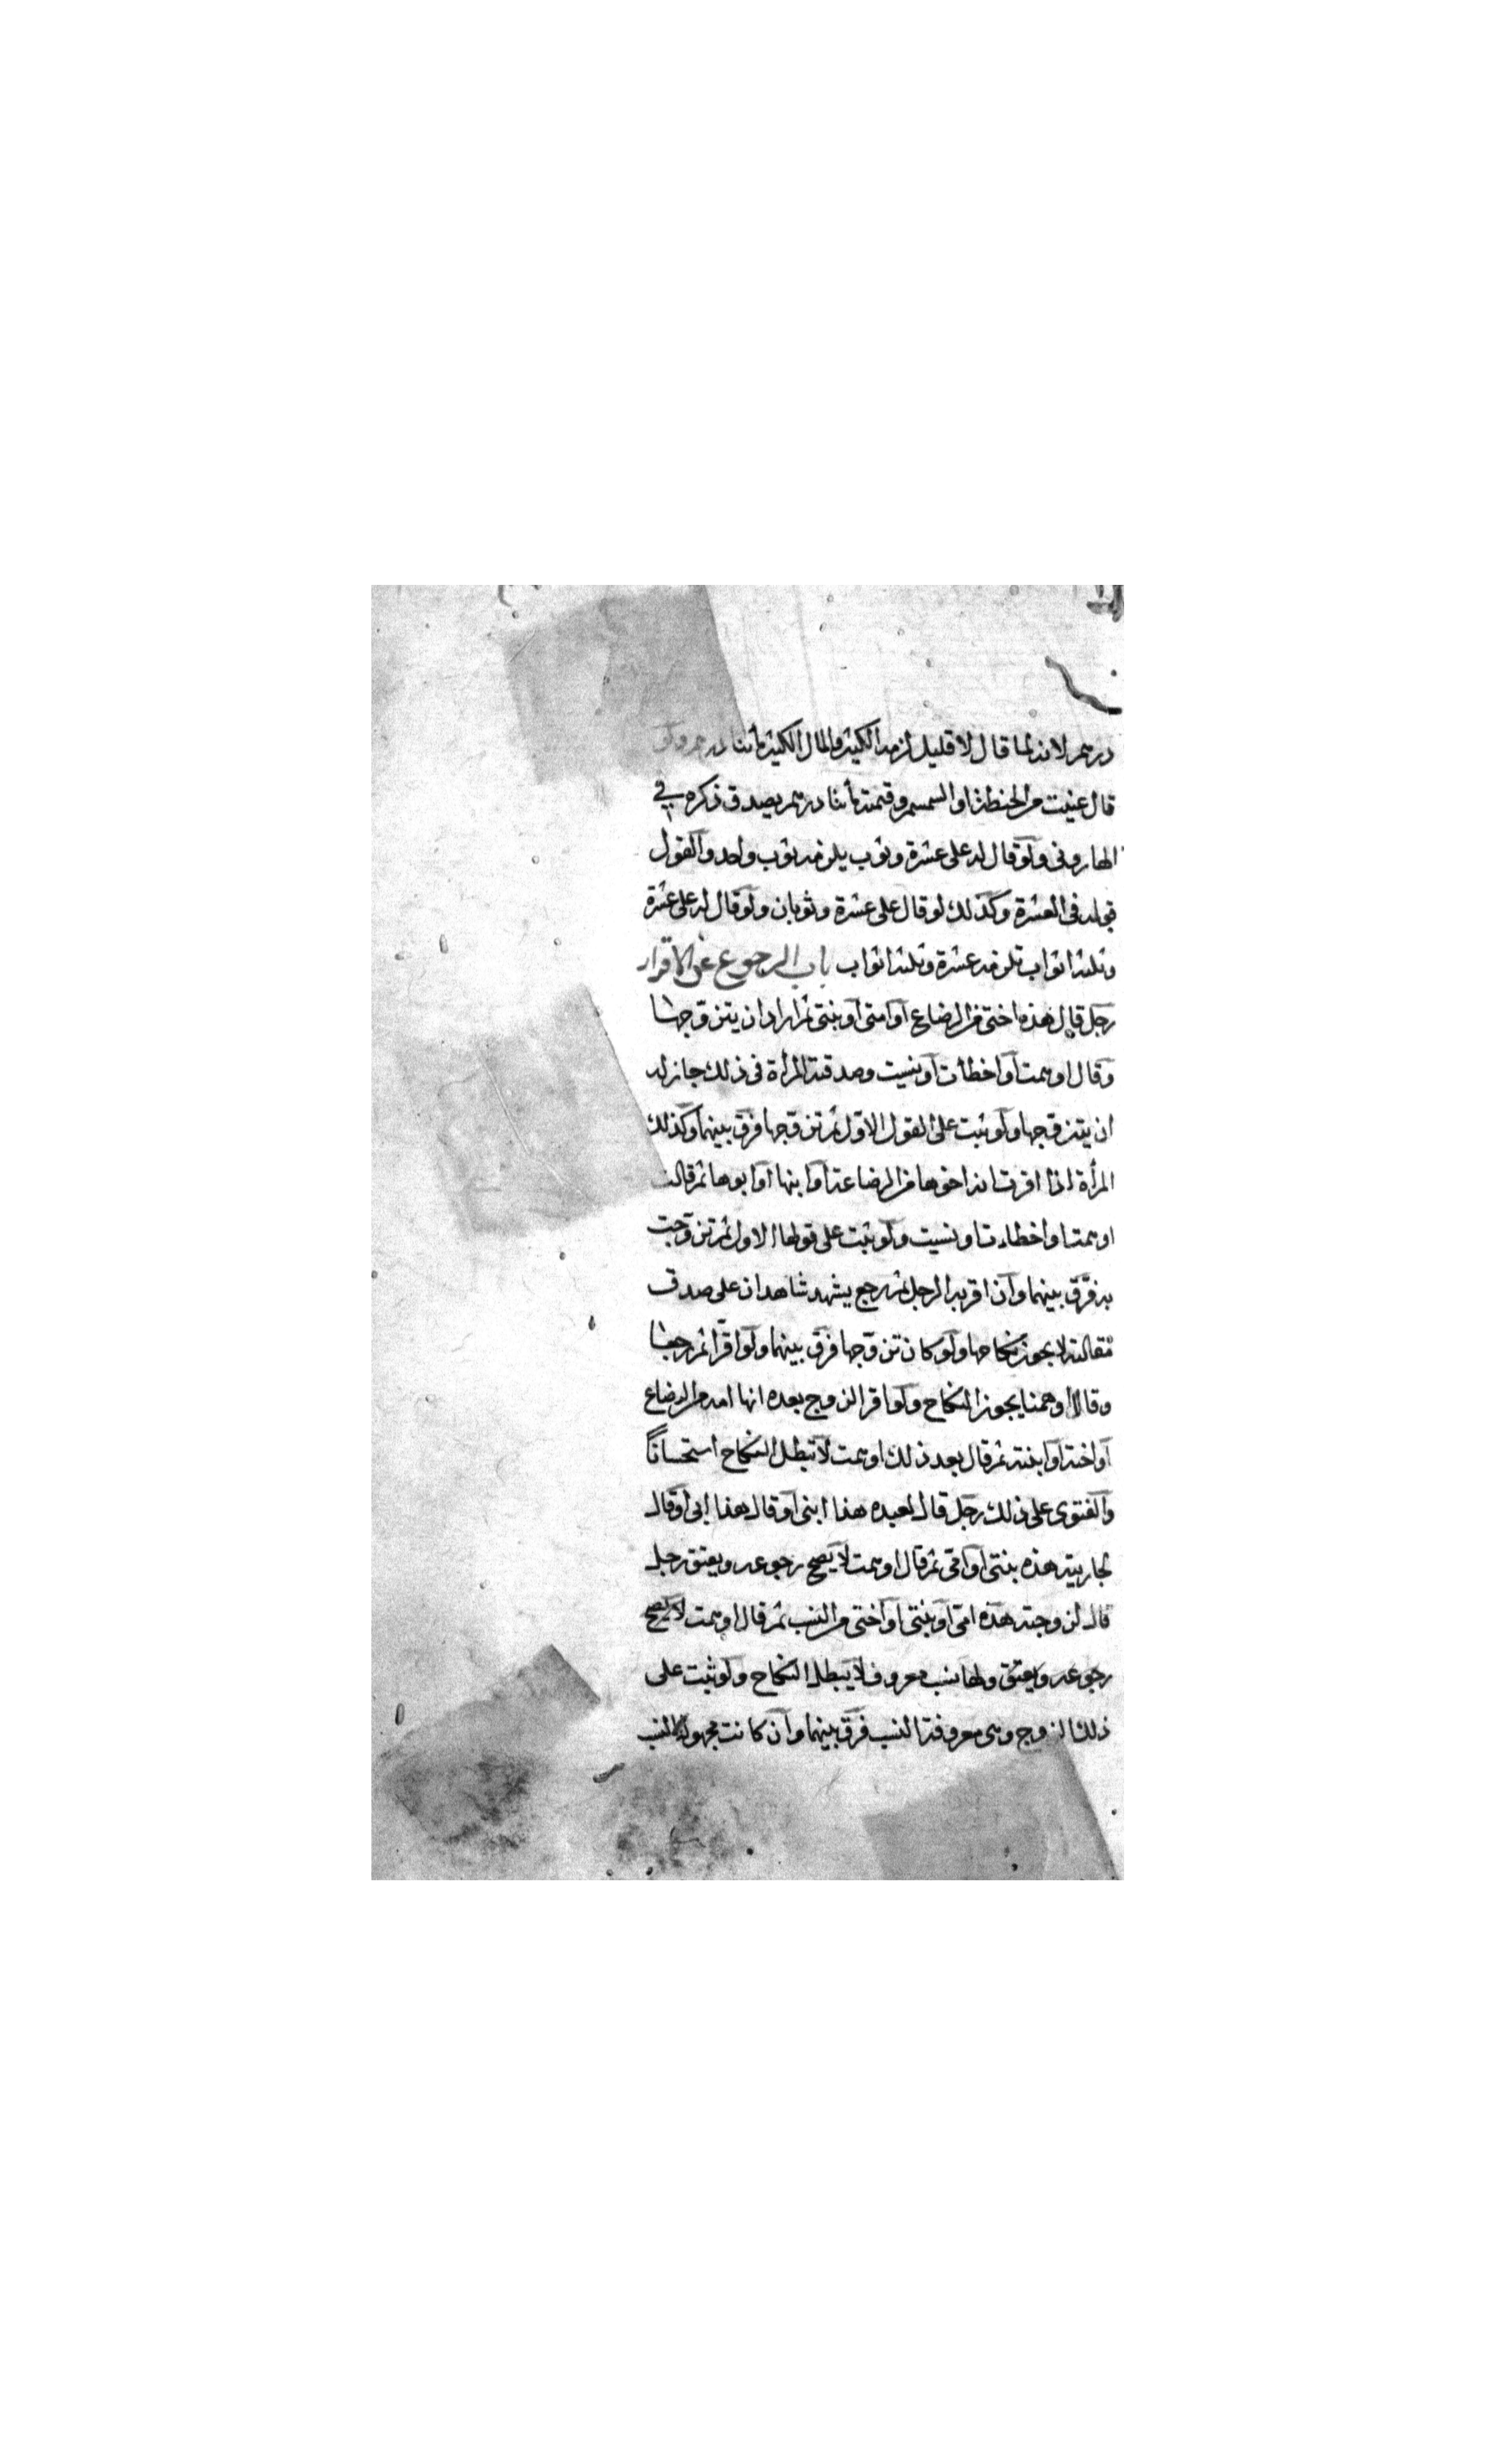 درهم لانه لما قال لا قليل لزمه الكثير والمال الكثير مأتنا درهم ولو
قال عنيت من الحنطة او السمسم وقيمته مأتنا درهم يصدق ذكره في
الهاروني ولو قال له على عشرة وثوب يلزمه ثوب واحد والقول
قوله في العشرة وكذلك لو قال على عشرة وثوبان ولو قال له على عشرة
وثلثة اثواب تلزمه عشرة وثلثة اثواب باب الرجوع عن الاقرار
رجل قال هذه اختى من الرضاع او امتى او بنتى ثم اراد ان يتزوجها
وقال اوهمت او اخطأت او نسيت وصدقته المرأة في ذلك جاز له
ان يتزوجها ولو ثبت على القول الاول ثم تزوجها فرق بينهما وكذلك
المرأة اذا اقرت انه اخوها من الرضاعة او ابنها او ابوها ثم قالت
اوهمت او اخطاءت او نسيت ولو ثبت على قولها الاول ثم تزوجت
به فرّق بينهما وان اقر به الرجل ثم رجع يشهد شاهدان على صدق
مقالته لا يجوز نكاحها ولو كان تزوجها فرق بينهما ولو اقرّا ثم رجعا
وقالا اوهمنا يجوز النكاح ولو اقر الزوج بعده انها امه من الرضاع
او اخته او ابنته ثم قال بعد ذلك اوهمت لا تبطل النكاح استحساناً
والفتوى على ذلك رجل قال لعبده هذا ابنى او قال هذا ابى او قال
لجاريته هذه بنتى او امى ثم قال اوهمت لا يصح رجوعه ويعتق رجل
قال لزوجته هذه امى او بنتى او اختى من النسب ثم قال اوهمت لا يصح
رجوعه ويعتق ولها نسب معروف لا يبطل النكاح ولو ثبت على
ذلك الزوج وهى معروفة النسب فرق بينهما وان كانت مجهولة النسب